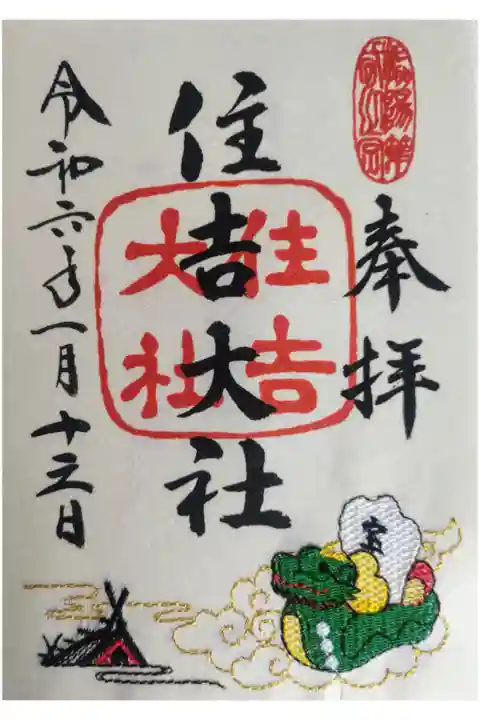 奉拝
住吉大社
住吉
大社
令和六年一月十三日
宝